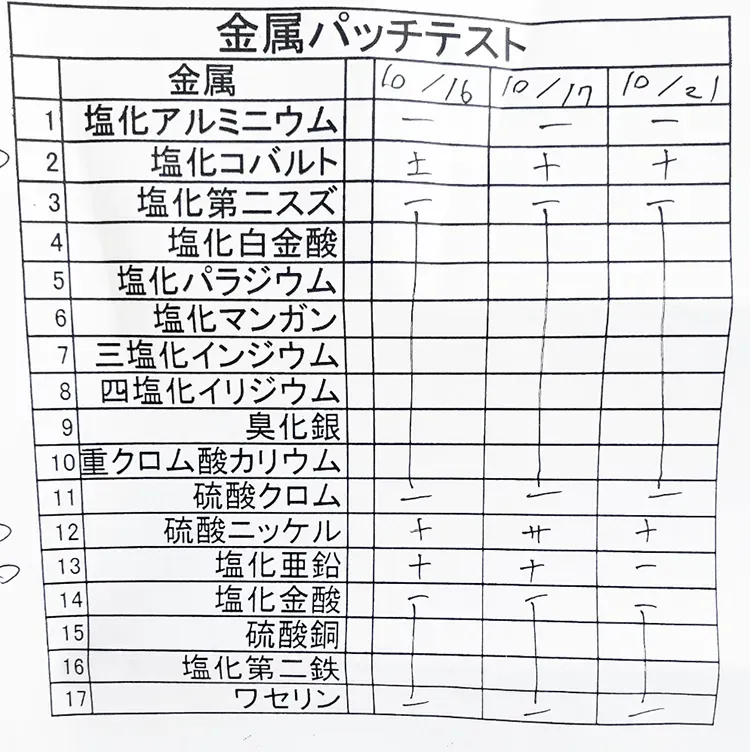 金属パッチテスト
金属 10/16 10/17 10/21
1 塩化アルミニウム － － －
2 塩化コバルト ± + +
3 塩化第二スズ － － －
4 塩化白金酸
5 塩化パラジウム
6 塩化マンガン
7 三塩化インジウム
8 四塩化イリジウム
9 臭化銀
10 重クロム酸カリウム
11 硫酸クロム － － －
12 硫酸ニッケル + ++ +
13 塩化亜鉛 + + －
14 塩化金酸 － － －
15 硫酸銅
16 塩化第二鉄
17 ワセリン － － －